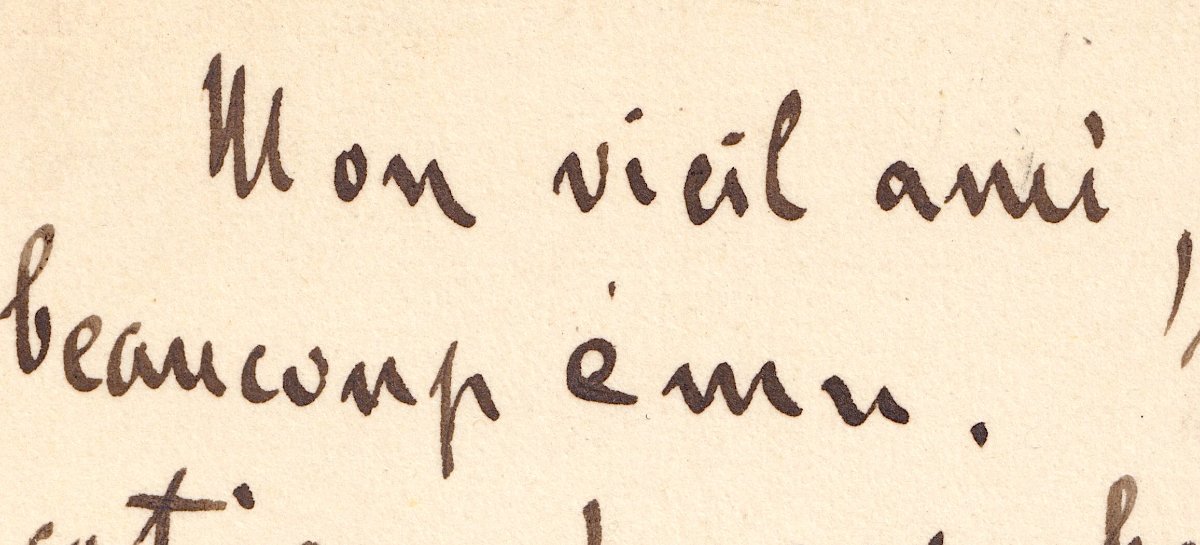 Mon vieil ami,
beaucoup ému.